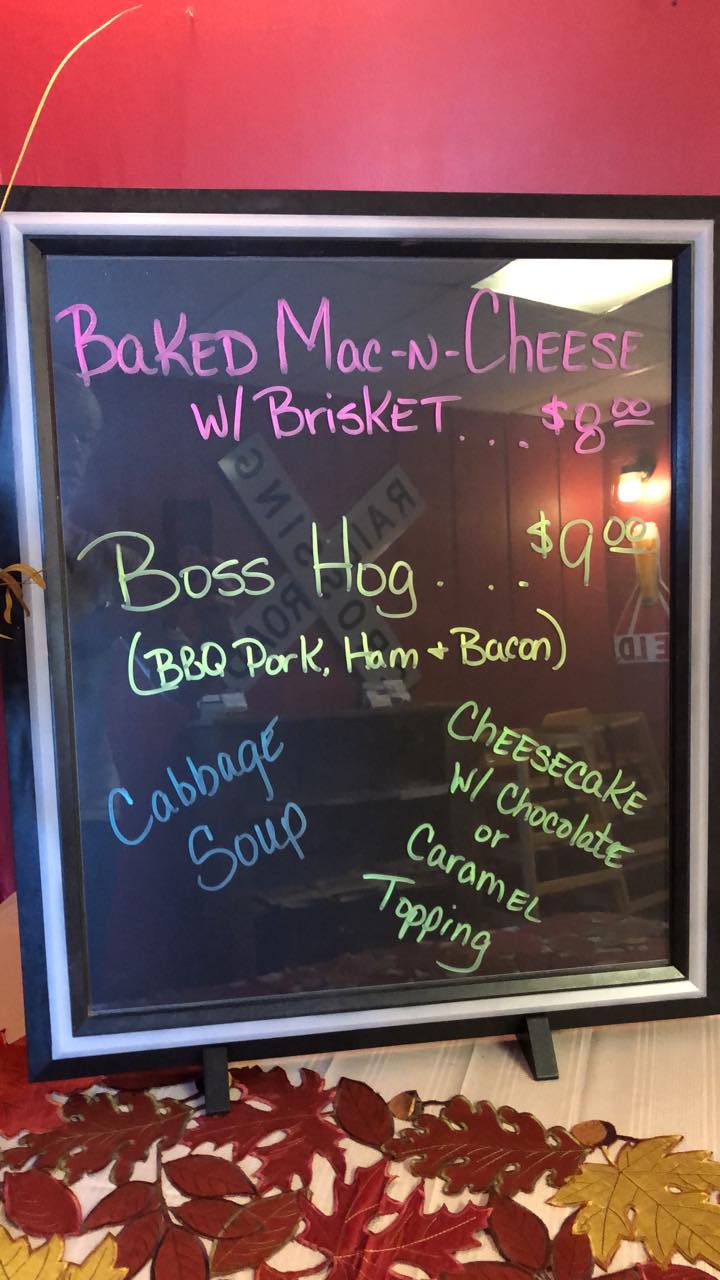 BaKED Mac-N-CHEESE
W/ BrisKET... $8.00
Boss Hog... $9.00
(BBQ Pork, Ham + Bacon)
CabbagE
Soup
CHEESECaKE
W/ Chocolate
or
CaramEL
Topping
RAIL ROAD
CROSSING